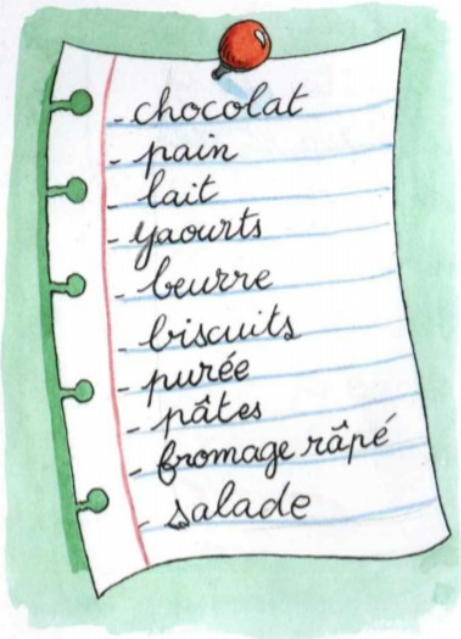 - chocolat
- pain
- lait
- yaourts
- beurre
- biscuits
- purée
- pâtes
- fromage râpé
- salade